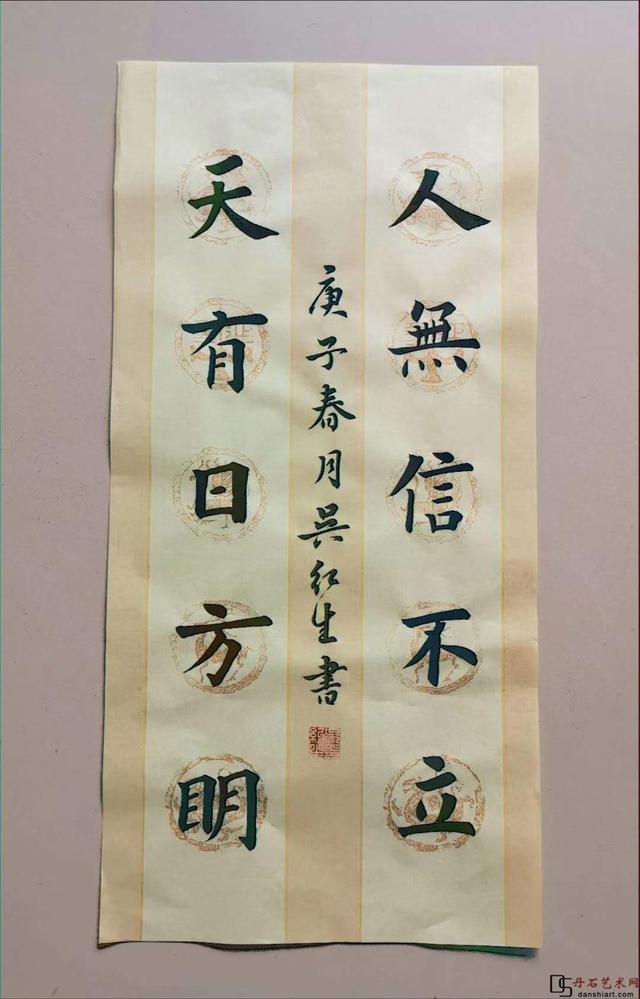 人無信不立
天有日方眀
庚子春月吳紅生書
丹石艺术网
DS danshiart.com